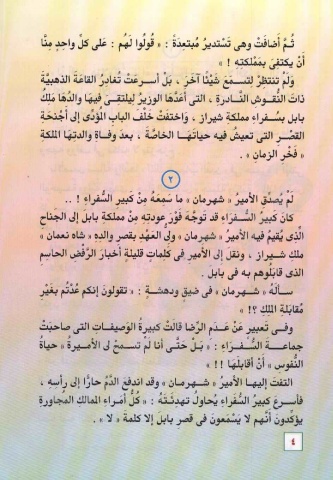 ثُمَّ أضافَتْ وهى تَسْتديرُ مُبتعِدةً : « قُولُوا لَهُم : عَلَى كلِّ واحِدٍ مِنَّا
أنْ يكتفىَ بمَمْلكتِهِ ! »
ولَمْ تنتظِرْ لتسمعَ شيئًا آخرَ ، بَلْ أسرعَتْ تُغادرُ القاعةَ الذهبيةَ
ذاتَ النُّقوشِ النَّادرةِ ، التى أعدَّها الوزيرُ ليلتقىَ فيها والدُها مَلِكُ
بابل بسُفراءِ مملكةِ شيراز ، واختفتْ خَلْفَ البابِ المؤدِّى إلى أجنحةِ
القصْرِ التى تعيشُ فيه حياتَهَا الخاصَّةَ ، بعدَ وفاةِ والدتِها الملكةِ
« فَخْرِ الزمانِ » .
٢
لَمْ يُصدِّقِ الأميرُ « شهرمان » ما سَمِعَهُ مِنْ كبيرِ السُّفراءِ ! ..
كانَ كبيرُ السُّفَراءِ قد توجَّهَ فَوْرَ عودتِهِ مِنْ مملكةِ بابل إلى الجناحِ
الَّذى يُقيمُ فيه الأميرُ « شهرمان » ولىُّ العَهْدِ بقصرِ والدِهِ « شاه نعمان »
ملك شيراز ، ونقلَ إلى الأميرِ فى كلماتٍ قليلةٍ أخبارَ الرَّفْضِ الحاسِمِ
الذى قابلُوهم به فى بابل .
سألَهُ « شهرمان » فى ضيقٍ ودهشةٍ : « تقولونَ إنكم عُدْتُم بغَيْرِ
مُقابلةِ المَلِكِ ؟! »
وفِـى تَعبيرٍ عَنْ عَـدَمِ الرِّضا قالَتْ كبيرةُ الوَصِيفاتِ التى صاحبَتْ
جماعـةَ السُّـفَـراءِ : « بَلْ حَتَّى أنا لم تَسمحْ لى الأميرةُ « حياةُ
النُّفوسِ » أنْ أقابلَهَا !! »
التفتَ إليها الأميرُ « شهرمان » وقد اندفعَ الدَّمُ حارًّا إلى رأسِهِ ،
فأسرعَ كبيرُ السُّفراءِ يُحاولُ تهدئتَهُ : « كلُّ أمراءِ الممالكِ المجاورةِ
يؤكِّدونَ أنَّهم لا يَسْمعونَ فى قصرِ بابلَ إلا كلمةَ « لا » .
٤